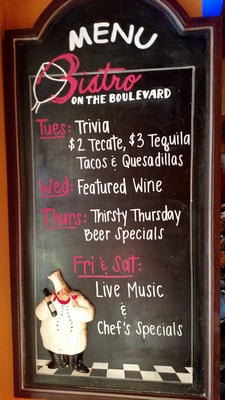 MENU
Bistro
ON THE BOULEVARD
Tues: Trivia
$2 Tecate, $3 Tequila
Tacos & Quesadillas
Wed: Featured Wine
Thurs: Thirsty Thursday
Beer Specials
Fri & Sat:
Live Music
&
Chef's Specials